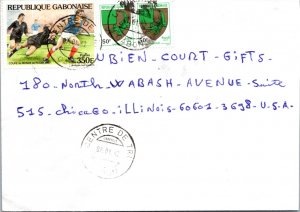 REPUBLIQUE GABONAISE
350F
50F
50F
UBIEN-COURT-GIFTS-
180-North-WABASH-AVENUE-Suite
515-Chicago-ILLINOIS-60601-3698-U.S.A
CENTRE DE TRI